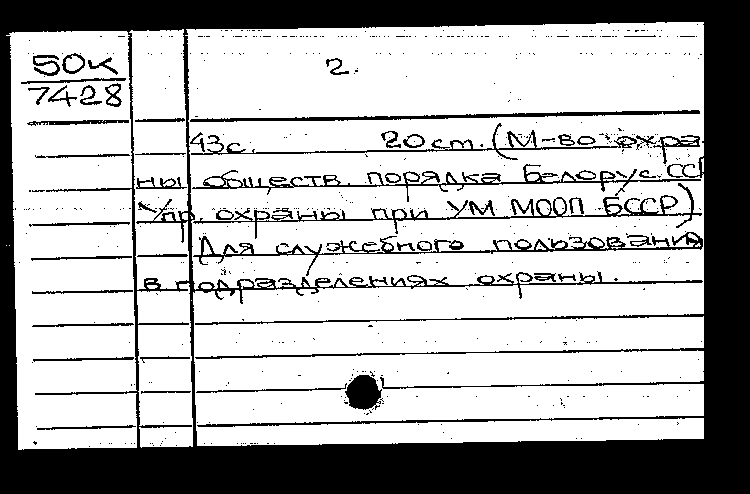 50К
7428
2.
43с. 20 см. (М-во охра-
ны обществ. порядка Белорус. ССР
Упр. охраны при УМ МООП БССР)
Для служебного пользования
в подразделениях охраны.